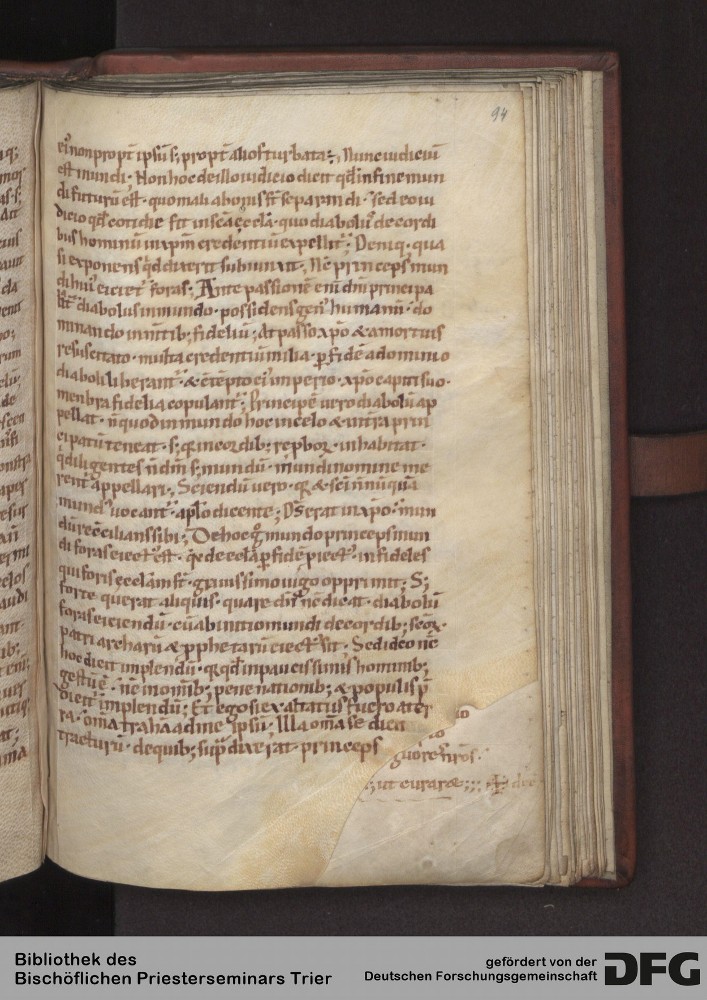 94
ei' non propt̄ ipsū s; propt̄ alios turbata ē; Nunc iudiciū
est mundi; Non hoc de illo iudicio dicit qd̄ in fine mun
di futurū est · quo mali a bonis s̄t separandi · sed eo iu
dicio qd̄ cotidie fit in sc̄a ęccl̄a · quo diabolus de cordi
bus hominū in xp̄m credentiū expellit; Deniq; qua
si exponens qd̄ dixerit subiunxit; Nc̄ princeps mun
di hui' eiciet̄ foras; Ante passionē eni dn̄i principa
bat̄ diabolus in mundo · possidens gen' humanū · do
minando in m̄tib; fideliū; At passo xp̄o & a mortuis
resuscitato · multa credentiū milia · p̄ fidē a dominio
diaboli liberant̄ · & ei' imperio · xp̄o capiti suo ·
menbra fidelia copulant̄; Principē uero diabolū ap
pellat · n̄ quod in mundo hoc in celo & in terra prin
cipatū teneat · s; q; in cordib; reproboꝝ inhabitat ·
q̄ diligentes n̄ dm̄ s; mundū · mundi nomine me
rent̄ appellari; Sciendū uero · q; & sc̄i n̄ nūquā
mund' uocant̄ · aplo dicente; Ds̄ erat in xp̄o · mun
dū reconcilians sibi; De hoc g° mundo princeps mun
di foras eiect' est · q̄ de eccl̄a p̄ fidē piect' · infideles
qui foris ęccl̄am s̄t · grauissimo iugo opprimit; S;
forte querat aliquis · quare dn̄s nc̄ dicat · diabolū
foras eiciendū · cū ab initio mundi de cordib; sc̄oꝝ ·
patriarcharū & pphetarū eiect' sit · Sed ideo nc̄
hoc dicit implendū · q; qd̄ in paucissimis hominib;
gestū ē · nc̄ in om̄ib; pene nationib; & populis p̄
dicit implendū; Et ego si exaltatus fuero a ter
ra · om̄a trahā ad me ipsū; Illa om̄a se dicit
tracturū · de quib; sup̄ dixerat · princeps
ut curare;;;
Bibliothek des
Bischöflichen Priesterseminars Trier
gefördert von der
Deutschen Forschungsgemeinschaft
DFG